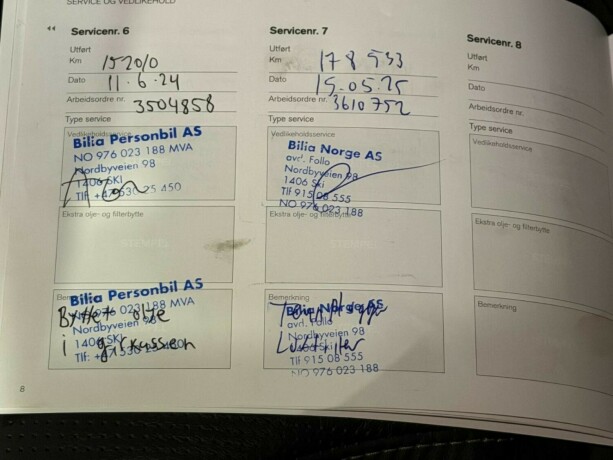 SERVICE OG VEDLIKEHOLD
Servicenr. 6
Utført
Km 152010
Dato 11.6.24
Arbeidsordre nr. 3504858
Type service
Vedlikeholdsservice
Bilia Personbil AS
NO 976 023 188 MVA
Nordbyveien 98
1406 SKI
Ekstra olje- og filterbytte
Bilia Personbil AS
023 188 MVA
Nordbyveien 98
Byttet olje
i girkassen
Servicenr. 7
Utført
Km 178533
Dato 15.05.25
Arbeidsordre nr. 3610752
Type service
Vedlikeholdsservice
Bilia Norge AS
avd. Follo
Nordbyveien 98
1406 Ski
Tlf 915 08 555
NO 976 023 188
Ekstra olje- og filterbytte
Bemerkning
Bilia Norge AS
avd. Follo
Nordbyveien 98
Tennplugger
Luftfilter
Tlf 915 08 555
NO 976 023 188
Servicenr. 8
Utført
Km
Dato
Arbeidsordre nr.
Type service
Vedlikeholdsservice
Ekstra olje- og filterbytte
Bemerkning
8